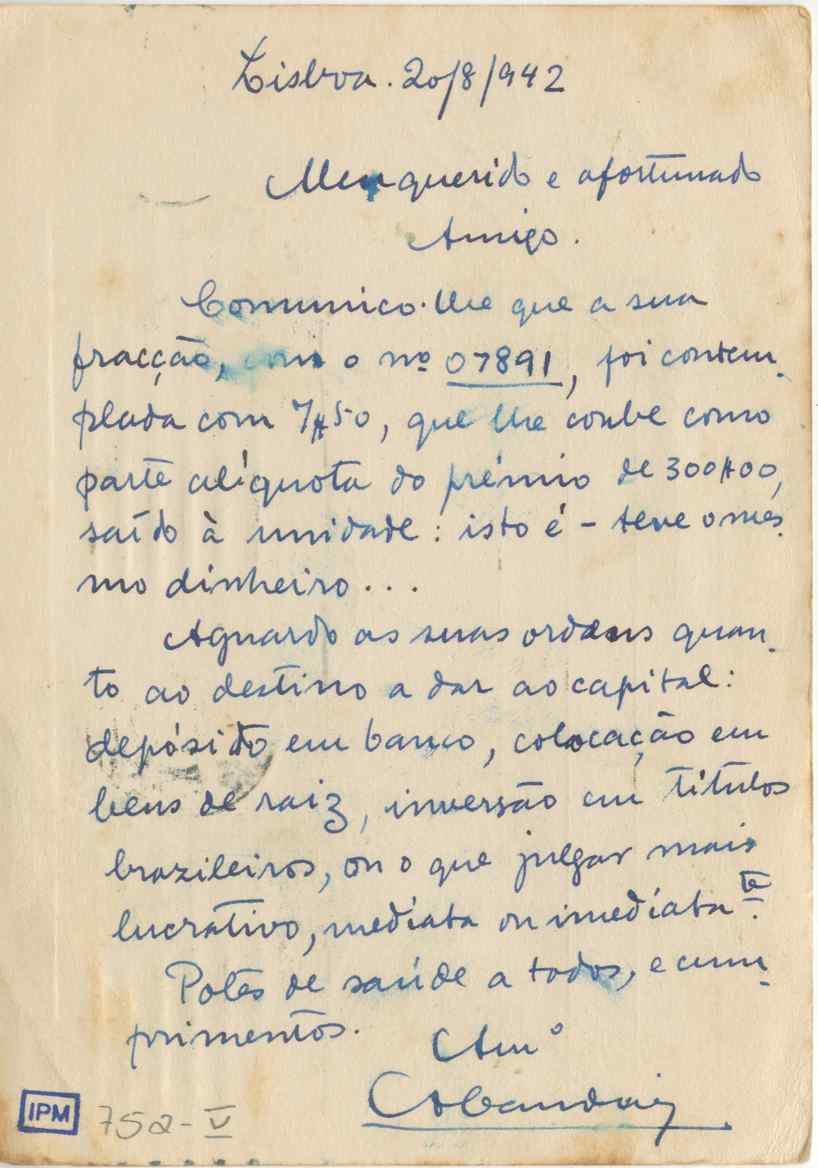 Lisboa. 20/8/942
Meu querido e afortunado
Amigo.
Comunico-lhe que a sua
fracção, com o nº 07891, foi contem-
plada com 7$50, que lhe coube como
parte alíquota do prémio de 300$00,
saído à unidade: isto é - teve o mês-
mo dinheiro...
Aguardo as suas ordens quan-
to ao destino a dar ao capital:
depósito em banco, colocação em
bens de raiz, inversão em títulos
brazileiros, ou o que julgar mais
lucrativo, mediata ou imediata.te
Potes de saúde a todos, e cum-
primentos.
Amº
IPM 752-V